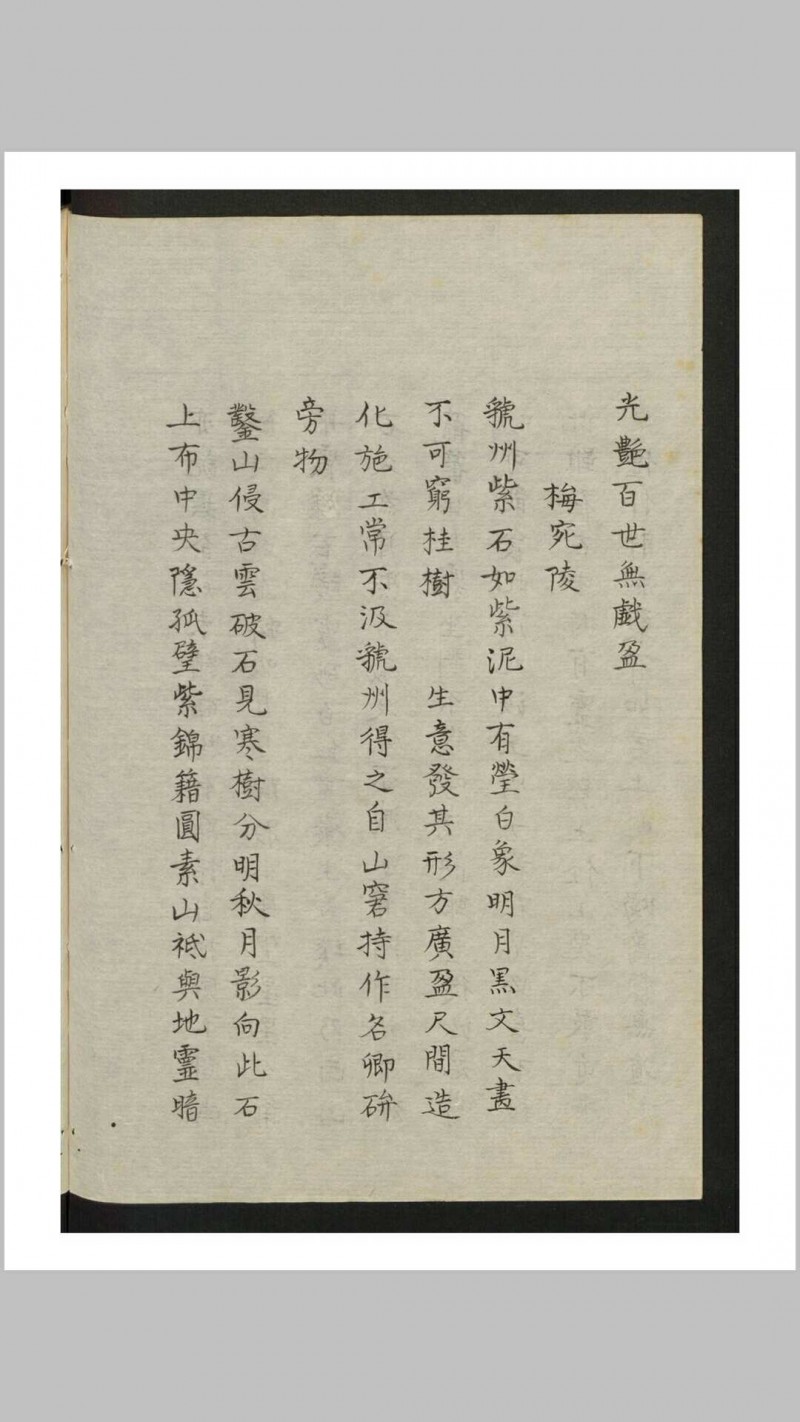 光艷百世無戲盈
梅宛陵
虢州紫石如紫泥中有瑩白象明月黒文天畫
不可窮桂樹　生意發其形方廣盈尺間造
化施工常不汲虢州得之自山窘持作名卿硏
旁物
鑿山侵古雲破石見寒樹分明秋月影向此石
上布中央隱孤壁紫錦籍圓素山祗與地靈暗